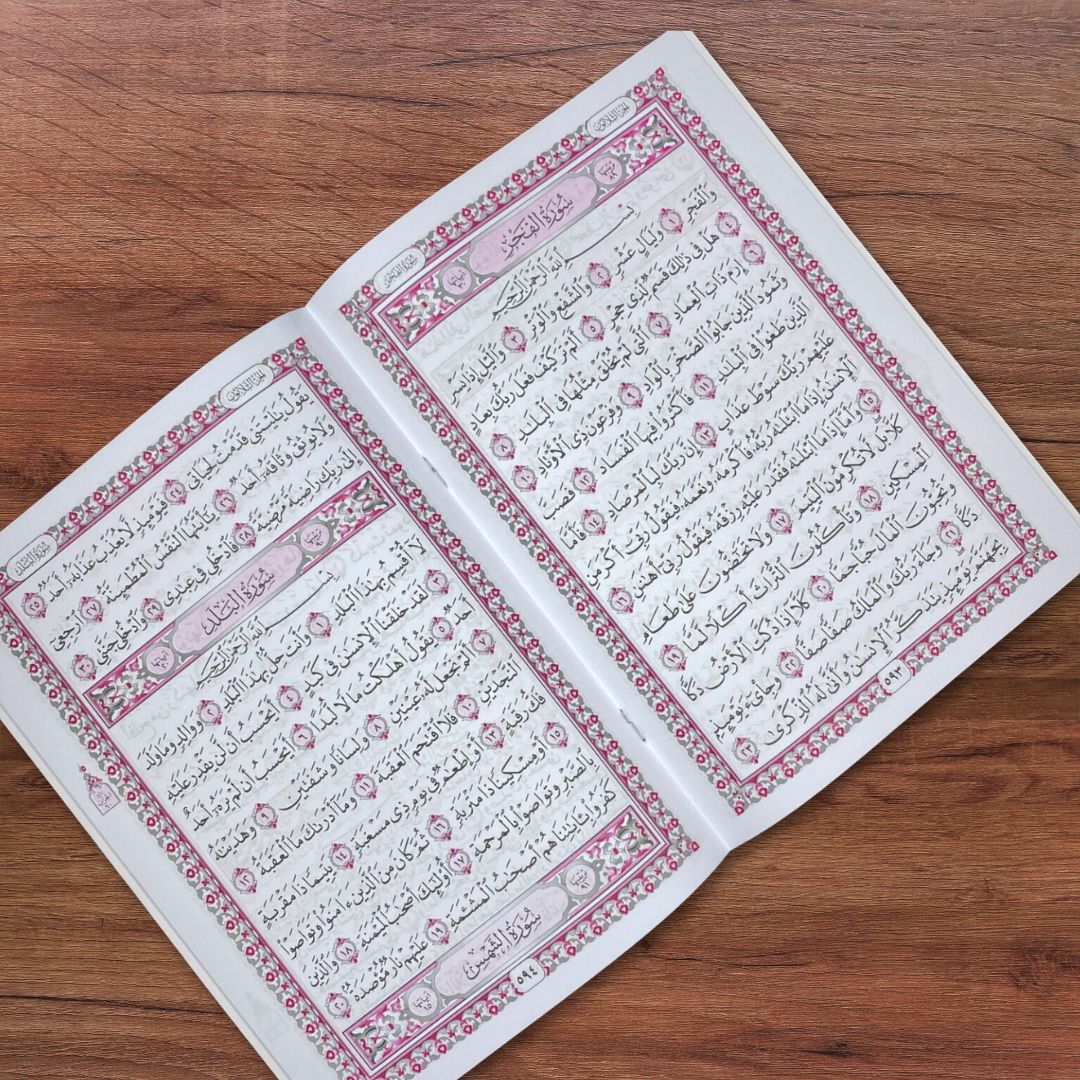 الجزء الثلاثون
سورة الفجر
ترتيبها ٨٩
سُورَةُ الفَجْرِ
آياتها ٣٠
بِسْمِ ٱللَّهِ ٱلرَّحْمَٰنِ ٱلرَّحِيمِ
وَٱلْفَجْرِ ١ وَلَيَالٍ عَشْرٍ ٢ وَٱلشَّفْعِ وَٱلْوَتْرِ ٣ وَٱلَّيْلِ إِذَا يَسْرِ
٤ هَلْ فِى ذَٰلِكَ قَسَمٌ لِّذِى حِجْرٍ ٥ أَلَمْ تَرَ كَيْفَ فَعَلَ رَبُّكَ بِعَادٍ
٦ إِرَمَ ذَاتِ ٱلْعِمَادِ ٧ ٱلَّتِى لَمْ يُخْلَقْ مِثْلُهَا فِى ٱلْبِلَٰدِ ٨
وَثَمُودَ ٱلَّذِينَ جَابُوا۟ ٱلصَّخْرَ بِٱلْوَادِ ٩ وَفِرْعَوْنَ ذِى ٱلْأَوْتَادِ ١٠
ٱلَّذِينَ طَغَوْا۟ فِى ٱلْبِلَٰدِ ١١ فَأَكْثَرُوا۟ فِيهَا ٱلْفَسَادَ ١٢ فَصَبَّ
عَلَيْهِمْ رَبُّكَ سَوْطَ عَذَابٍ ١٣ إِنَّ رَبَّكَ لَبِٱلْمِرْصَادِ ١٤ فَأَمَّا
ٱلْإِنسَٰنُ إِذَا مَا ٱبْتَلَىٰهُ رَبُّهُۥ فَأَكْرَمَهُۥ وَنَعَّمَهُۥ فَيَقُولُ رَبِّىٓ أَكْرَمَنِ
١٥ وَأَمَّآ إِذَا مَا ٱبْتَلَىٰهُ فَقَدَرَ عَلَيْهِ رِزْقَهُۥ فَيَقُولُ رَبِّىٓ أَهَٰنَنِ ١٦
كَلَّا بَل لَّا تُكْرِمُونَ ٱلْيَتِيمَ ١٧ وَلَا تَحَٰٓضُّونَ عَلَىٰ طَعَامِ
ٱلْمِسْكِينِ ١٨ وَتَأْكُلُونَ ٱلتُّرَاثَ أَكْلًا لَّمًّا ١٩
وَتُحِبُّونَ ٱلْمَالَ حُبًّا جَمًّا ٢٠ كَلَّآ إِذَا دُكَّتِ ٱلْأَرْضُ دَكًّا
دَكًّا ٢١ وَجَآءَ رَبُّكَ وَٱلْمَلَكُ صَفًّا صَفًّا ٢٢ وَجِا۟ىٓءَ يَوْمَئِذٍۭ
بِجَهَنَّمَ يَوْمَئِذٍ يَتَذَكَّرُ ٱلْإِنسَٰنُ وَأَنَّىٰ لَهُ ٱلذِّكْرَىٰ ٢٣
٥٩٣
الجزء الثلاثون
سورة البلد
يَقُولُ يَٰلَيْتَنِى قَدَّمْتُ لِحَيَاتِى ٢٤ فَيَوْمَئِذٍ لَّا يُعَذِّبُ عَذَابَهُۥٓ أَحَدٌ ٢٥
وَلَا يُوثِقُ وَثَاقَهُۥٓ أَحَدٌ ٢٦ يَٰٓأَيَّتُهَا ٱلنَّفْسُ ٱلْمُطْمَئِنَّةُ ٢٧ ٱرْجِعِىٓ
إِلَىٰ رَبِّكِ رَاضِيَةً مَّرْضِيَّةً ٢٨ فَٱدْخُلِى فِى عِبَٰدِى ٢٩ وَٱدْخُلِى جَنَّتِى ٣٠
ترتيبها ٩٠
سُورَةُ البَلَدِ
آياتها ٢٠
بِسْمِ ٱللَّهِ ٱلرَّحْمَٰنِ ٱلرَّحِيمِ
لَآ أُقْسِمُ بِهَٰذَا ٱلْبَلَدِ ١ وَأَنتَ حِلٌّۢ بِهَٰذَا ٱلْبَلَدِ ٢ وَوَالِدٍ وَمَا وَلَدَ
٣ لَقَدْ خَلَقْنَا ٱلْإِنسَٰنَ فِى كَبَدٍ ٤ أَيَحْسَبُ أَن لَّن يَقْدِرَ عَلَيْهِ
أَحَدٌ ٥ يَقُولُ أَهْلَكْتُ مَالًا لُّبَدًا ٦ أَيَحْسَبُ أَن لَّمْ يَرَهُۥٓ أَحَدٌ
٧ أَلَمْ نَجْعَل لَّهُۥ عَيْنَيْنِ ٨ وَلِسَانًا وَشَفَتَيْنِ ٩ وَهَدَيْنَٰهُ
ٱلنَّجْدَيْنِ ١٠ فَلَا ٱقْتَحَمَ ٱلْعَقَبَةَ ١١ وَمَآ أَدْرَىٰكَ مَا ٱلْعَقَبَةُ ١٢
فَكُّ رَقَبَةٍ ١٣ أَوْ إِطْعَٰمٌ فِى يَوْمٍ ذِى مَسْغَبَةٍ ١٤ يَتِيمًا ذَا مَقْرَبَةٍ
١٥ أَوْ مِسْكِينًا ذَا مَتْرَبَةٍ ١٦ ثُمَّ كَانَ مِنَ ٱلَّذِينَ ءَامَنُوا۟ وَتَوَاصَوْا۟
بِٱلصَّبْرِ وَتَوَاصَوْا۟ بِٱلْمَرْحَمَةِ ١٧ أُو۟لَٰٓئِكَ أَصْحَٰبُ ٱلْمَيْمَنَةِ ١٨ وَٱلَّذِينَ
كَفَرُوا۟ بِـَٔايَٰتِنَا هُمْ أَصْحَٰبُ ٱلْمَشْـَٔمَةِ ١٩ عَلَيْهِمْ نَارٌ مُّؤْصَدَةٌۢ ٢٠
ترتيبها ٩١
سُورَةُ الشَّمْسِ
آياتها ١٥
٥٩٤